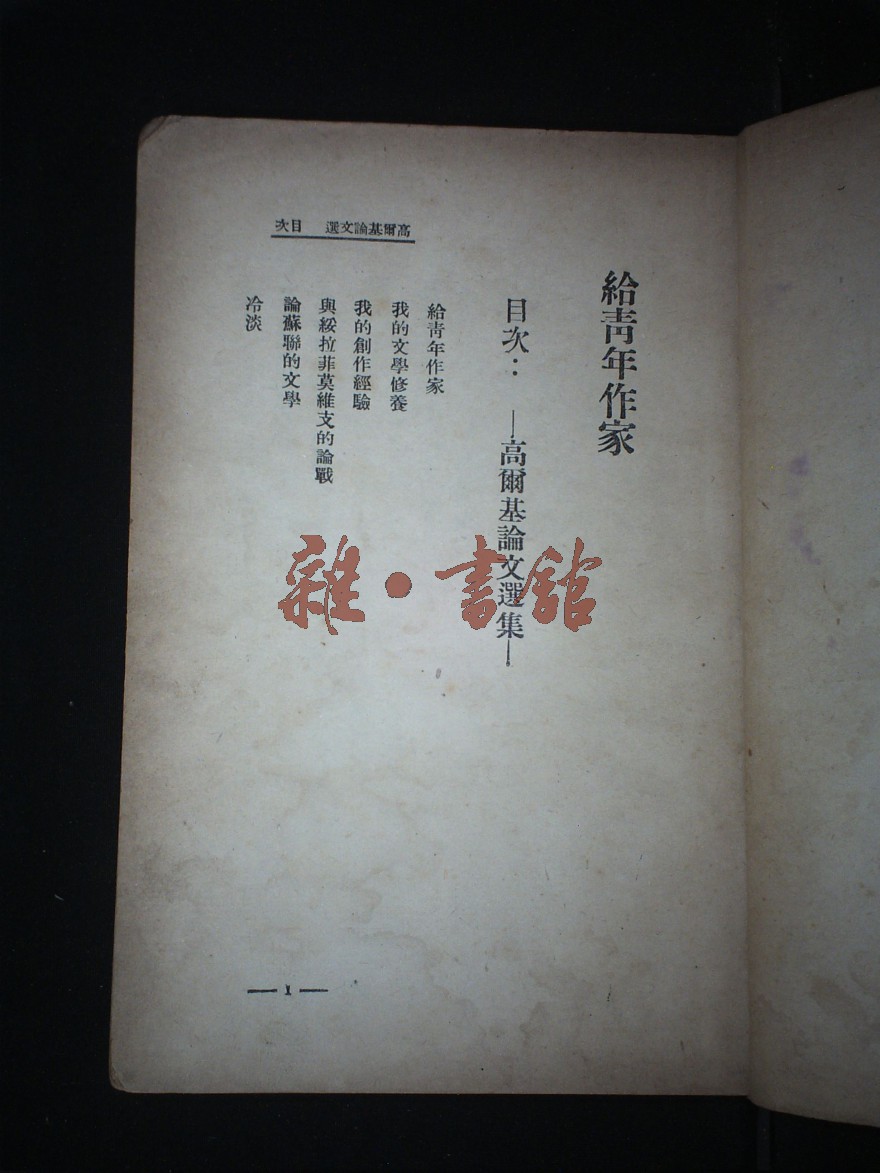 高爾基論文選　目次
給靑年作家
目次：　—高爾基論文選集—
給靑年作家
我的文學修養
我的創作經驗
與綏拉菲莫維支的論戰
論蘇聯的文學
冷淡
雜·書館
— 1 —